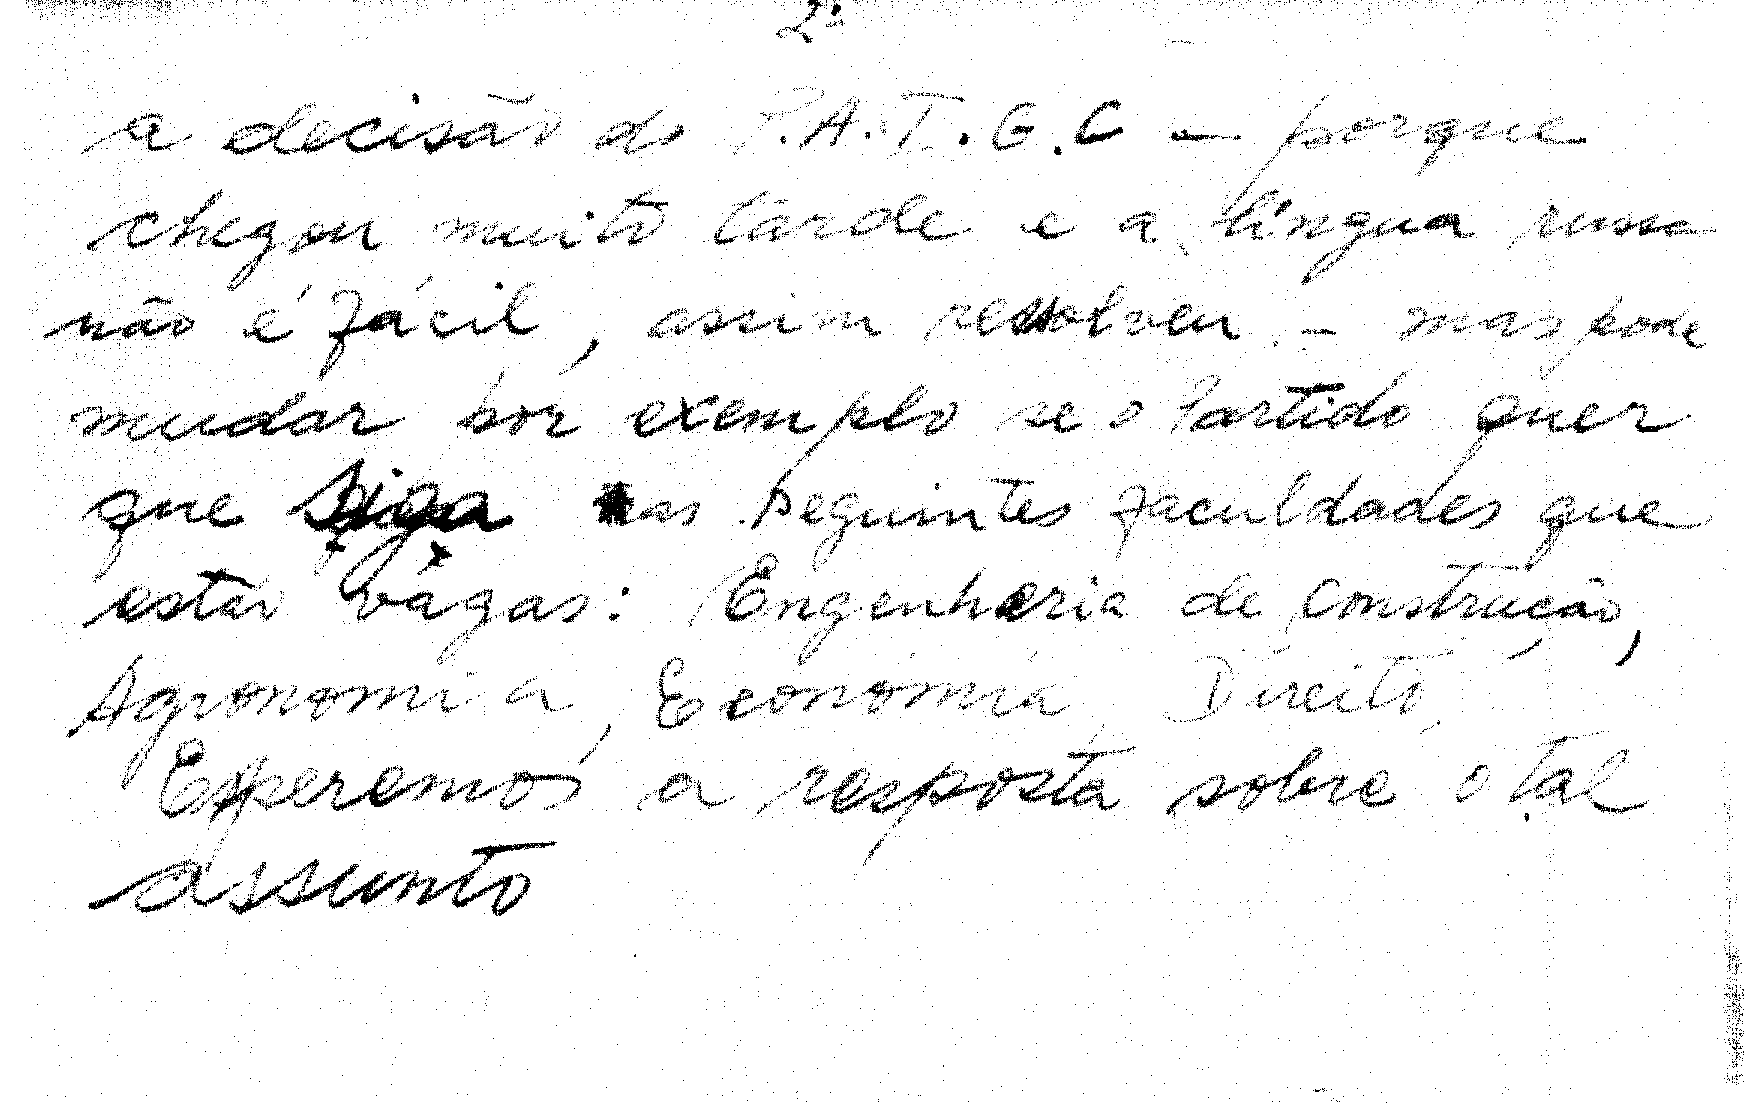 2ª
a decisão do P.A.T.G.C – porque
chegou muito tarde e a língua russa
não é fácil, assim resolveu – mas pode
mudar por exemplo se o Partido quer
que siga nas seguintes faculdades que
estão vágas: Engenharia de construção,
Agronomia, Economia, Direito,
Esperemos a resposta sobre o tal
assunto